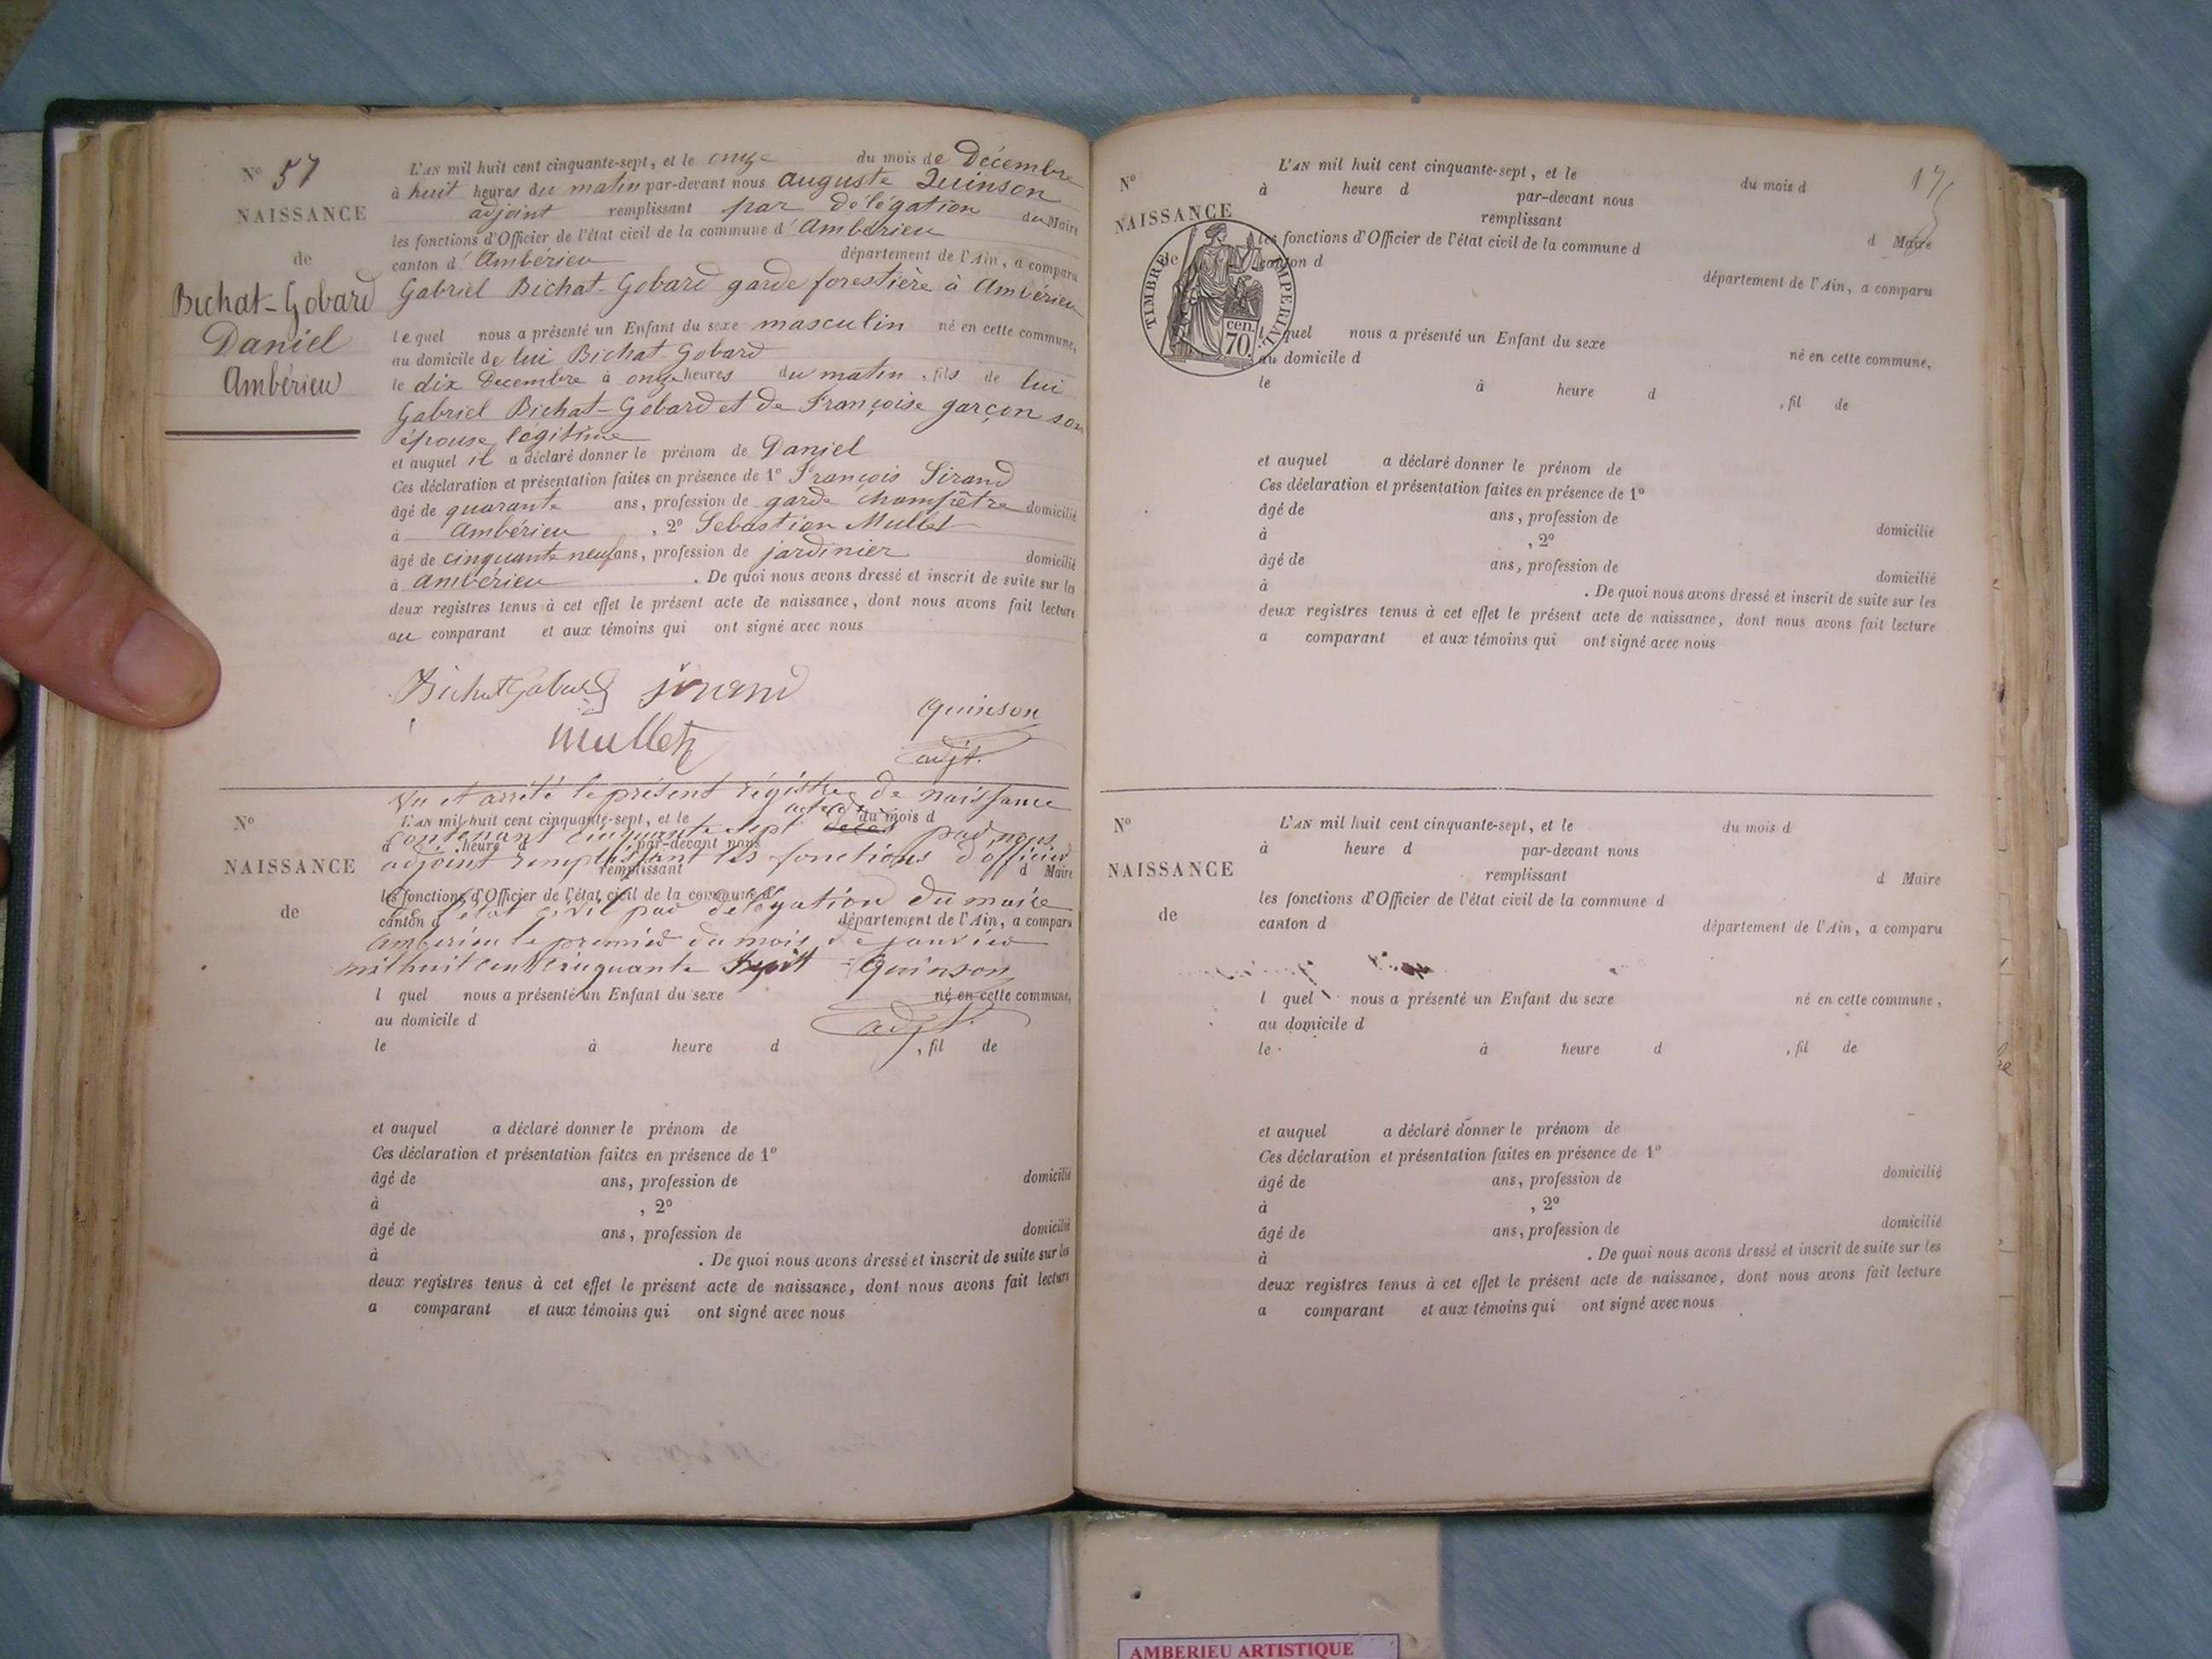 N° 57
NAISSANCE
de
Bichat-Gobard
Daniel
Ambérieu
L'AN mil huit cent cinquante-sept, et le onze du mois de Décembre
à huit heures du matin par-devant nous auguste Quinson
adjoint remplissant par délégation du Maire
les fonctions d'Officier de l'état civil de la commune d'Ambérieu
canton d'Ambérieu département de l'Ain, a comparu
Gabriel Bichat-Gobard garde forestière à Ambérieu
lequel nous a présenté un Enfant du sexe masculin né en cette commune,
au domicile de lui Bichat Gobard
le dix Decembre à onze heures du matin, fils de lui
Gabriel Bichat-Gobard et de Françoise garçon son
épouse légitime
et auquel il a déclaré donner le prénom de Daniel
Ces déclaration et présentation faites en présence de 1° François Sirand
âgé de quarante ans, profession de garde champêtre domicilié
à Ambérieu, 2° Sebastien Mullet
âgé de cinquante neuf ans, profession de jardinier domicilié
à ambérieu. De quoi nous avons dressé et inscrit de suite sur les
deux registres tenus à cet effet le présent acte de naissance, dont nous avons fait lecture
au comparant et aux témoins qui ont signé avec nous
BichatGobard Sirand
Quinson
Mullet
adjt.
Vu et arrêté le présent régistre de naissance
acte de
N° L'AN mil huit cent cinquante-sept, et le du mois d
contenant cinquante sept par nous
à heure d par-devant nous
adjoint remplissant les fonctions d'officier
NAISSANCE
remplissant d Maire
les fonctions d'Officier de l'état civil de la commune d
de l'état civil par délégation du maire
de
canton d département de l'Ain, a comparu
Amberieu le premier du mois de janvier
mil huit cent cinquante Quinson
l quel nous a présenté un Enfant du sexe né en cette commune,
au domicile d
adjt.
le à heure d, fil de
et auquel a déclaré donner le prénom de
Ces déclaration et présentation faites en présence de 1°
âgé de ans, profession de domicilié
à , 2°
âgé de ans, profession de domicilié
à . De quoi nous avons dressé et inscrit de suite sur les
deux registres tenus à cet effet le présent acte de naissance, dont nous avons fait lecture
a comparant et aux témoins qui ont signé avec nous
N°
NAISSANCE
de
TIMBRE IMPERIAL
cen. 70.
L'AN mil huit cent cinquante-sept, et le du mois d
à heure d par-devant nous
remplissant d Maire
les fonctions d'Officier de l'état civil de la commune d
canton d département de l'Ain, a comparu
l quel nous a présenté un Enfant du sexe né en cette commune,
au domicile d
le à heure d, fil de
et auquel a déclaré donner le prénom de
Ces déclaration et présentation faites en présence de 1°
âgé de ans, profession de domicilié
à , 2°
âgé de ans, profession de domicilié
à . De quoi nous avons dressé et inscrit de suite sur les
deux registres tenus à cet effet le présent acte de naissance, dont nous avons fait lecture
a comparant et aux témoins qui ont signé avec nous
N°
NAISSANCE
de
L'AN mil huit cent cinquante-sept, et le du mois d
à heure d par-devant nous
remplissant d Maire
les fonctions d'Officier de l'état civil de la commune d
canton d département de l'Ain, a comparu
l quel nous a présenté un Enfant du sexe né en cette commune,
au domicile d
le à heure d, fil de
et auquel a déclaré donner le prénom de
Ces déclaration et présentation faites en présence de 1°
âgé de ans, profession de domicilié
à , 2°
âgé de ans, profession de domicilié
à . De quoi nous avons dressé et inscrit de suite sur les
deux registres tenus à cet effet le présent acte de naissance, dont nous avons fait lecture
a comparant et aux témoins qui ont signé avec nous
AMBERIEU ARTISTIQUE